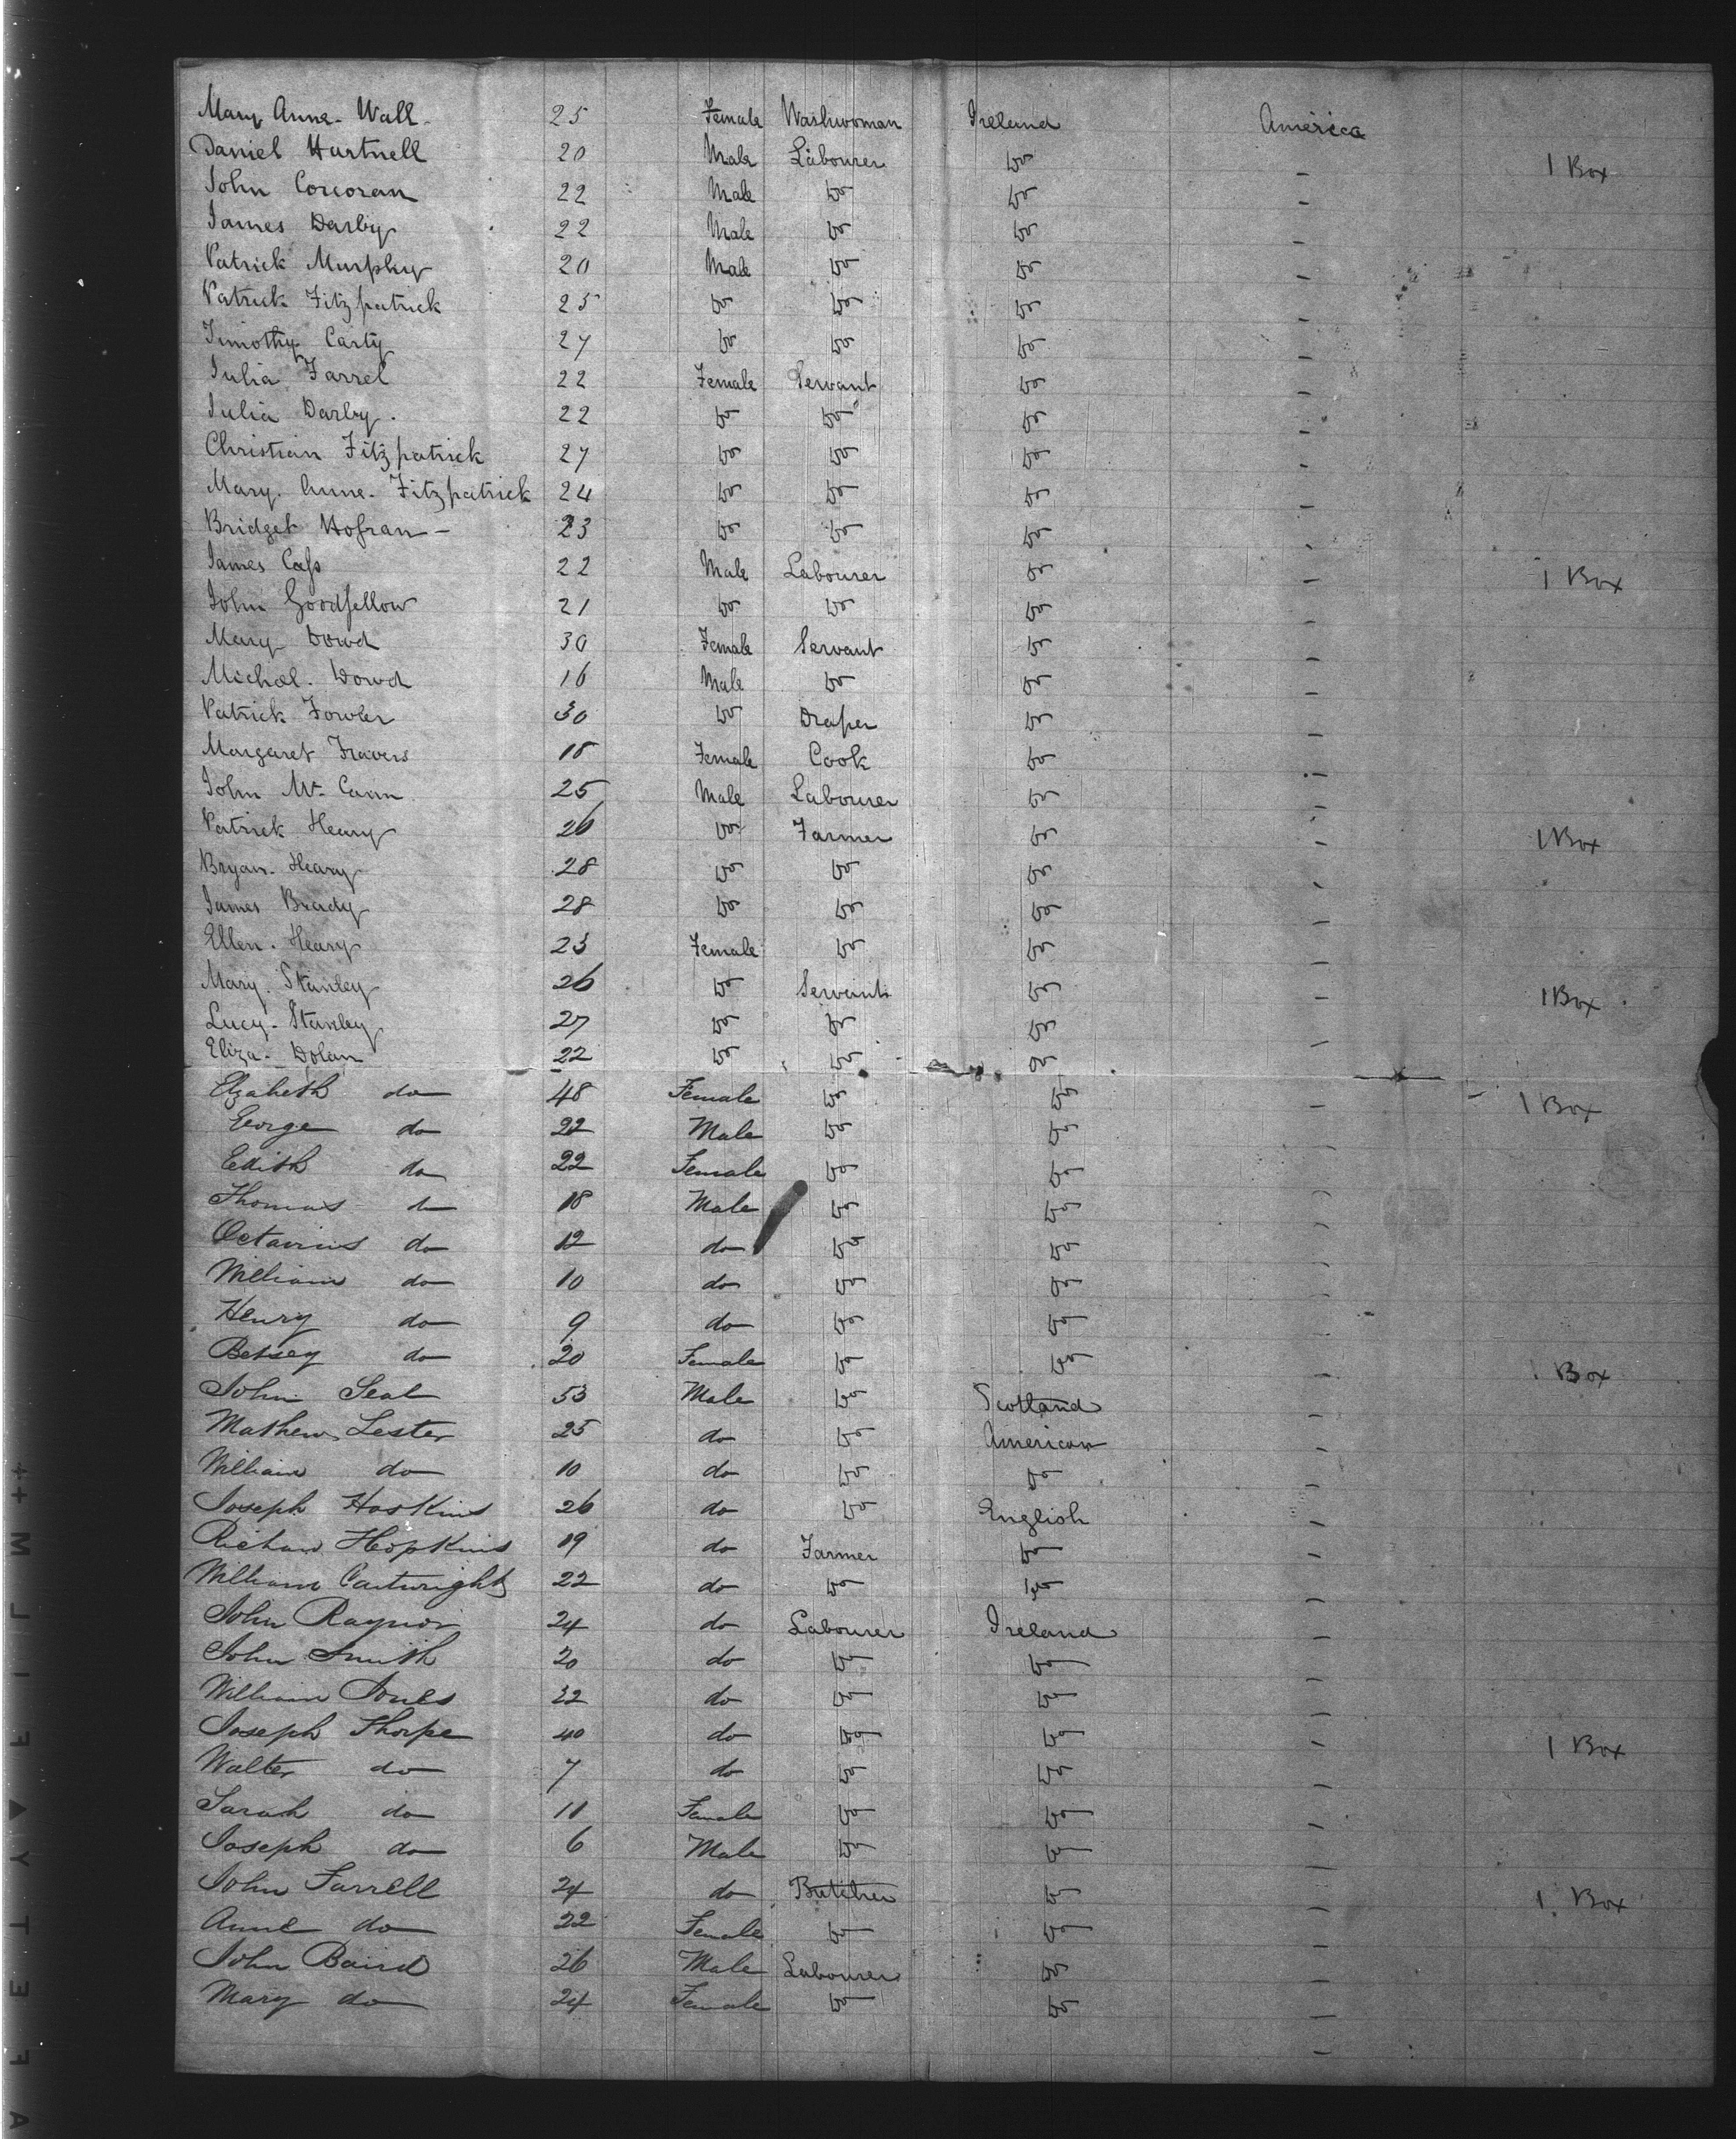 Mary Anne Wall 25 Female Washwoman Ireland America
Daniel Hartnell 20 Male Labourer Do – 1 Box
John Corcoran 22 Male Do Do –
James Darby 22 Male Do Do –
Patrick Murphy 20 Male Do Do –
Patrick Fitzpatrick 25 Do Do Do –
Timothy Carty 27 Do Do Do –
Julia Farrel 22 Female Servant Do –
Julia Darby 22 Do Do Do –
Christian Fitzpatrick 27 Do Do Do –
Mary Anne Fitzpatrick 24 Do Do Do –
Bridget Hofran – 23 Do Do Do –
James Cass 22 Male Labourer Do – 1 Box
John Goodfellow 21 Do Do Do –
Mary Dowd 30 Female Servant Do –
Michael Dowd 16 Male Do Do –
Patrick Fowler 30 Do Draper Do –
Margaret Travers 18 Female Cook Do –
John McCann 25 Male Labourer Do –
Patrick Heary 26 Do Farmer Do – 1 Box
Bryan Heary 28 Do Do Do –
James Brady 28 Do Do Do –
Ellen Heary 23 Female Do Do –
Mary Stanley 26 Do Servant Do – 1 Box
Lucy Stanley 27 Do Do Do –
Eliza Dolan 22 Do Do Do –
Elizabeth do 48 Female Do Do – 1 Box
George do 22 Male Do Do –
Edith do 22 Female Do Do –
Thomas do 18 Male Do Do –
Octavius do 12 do Do Do –
William do 10 do Do Do –
Henry do 9 do Do Do –
Betsey do 20 Female Do Do – 1 Box
John Seal 53 Male Do Scotland –
Mathew Lester 25 do Do American –
William do 10 do Do Do –
Joseph Hoskins 26 do Do English –
Richard Hopkins 19 do Farmer Do –
William Cartwright 22 do Do Do –
John Raynor 24 do Labourer Ireland –
John Smith 20 do Do Do –
William Jones 22 do Do Do –
Joseph Thorpe 40 do Do Do – 1 Box
Walter do 7 do Do Do –
Sarah do 11 Female Do Do –
Joseph do 6 Male Do Do –
John Farrell 24 do Butcher Do – 1 Box
Anne do 22 Female Do Do –
John Baird 26 Male Labourer Do –
Mary do 24 Female Do Do –